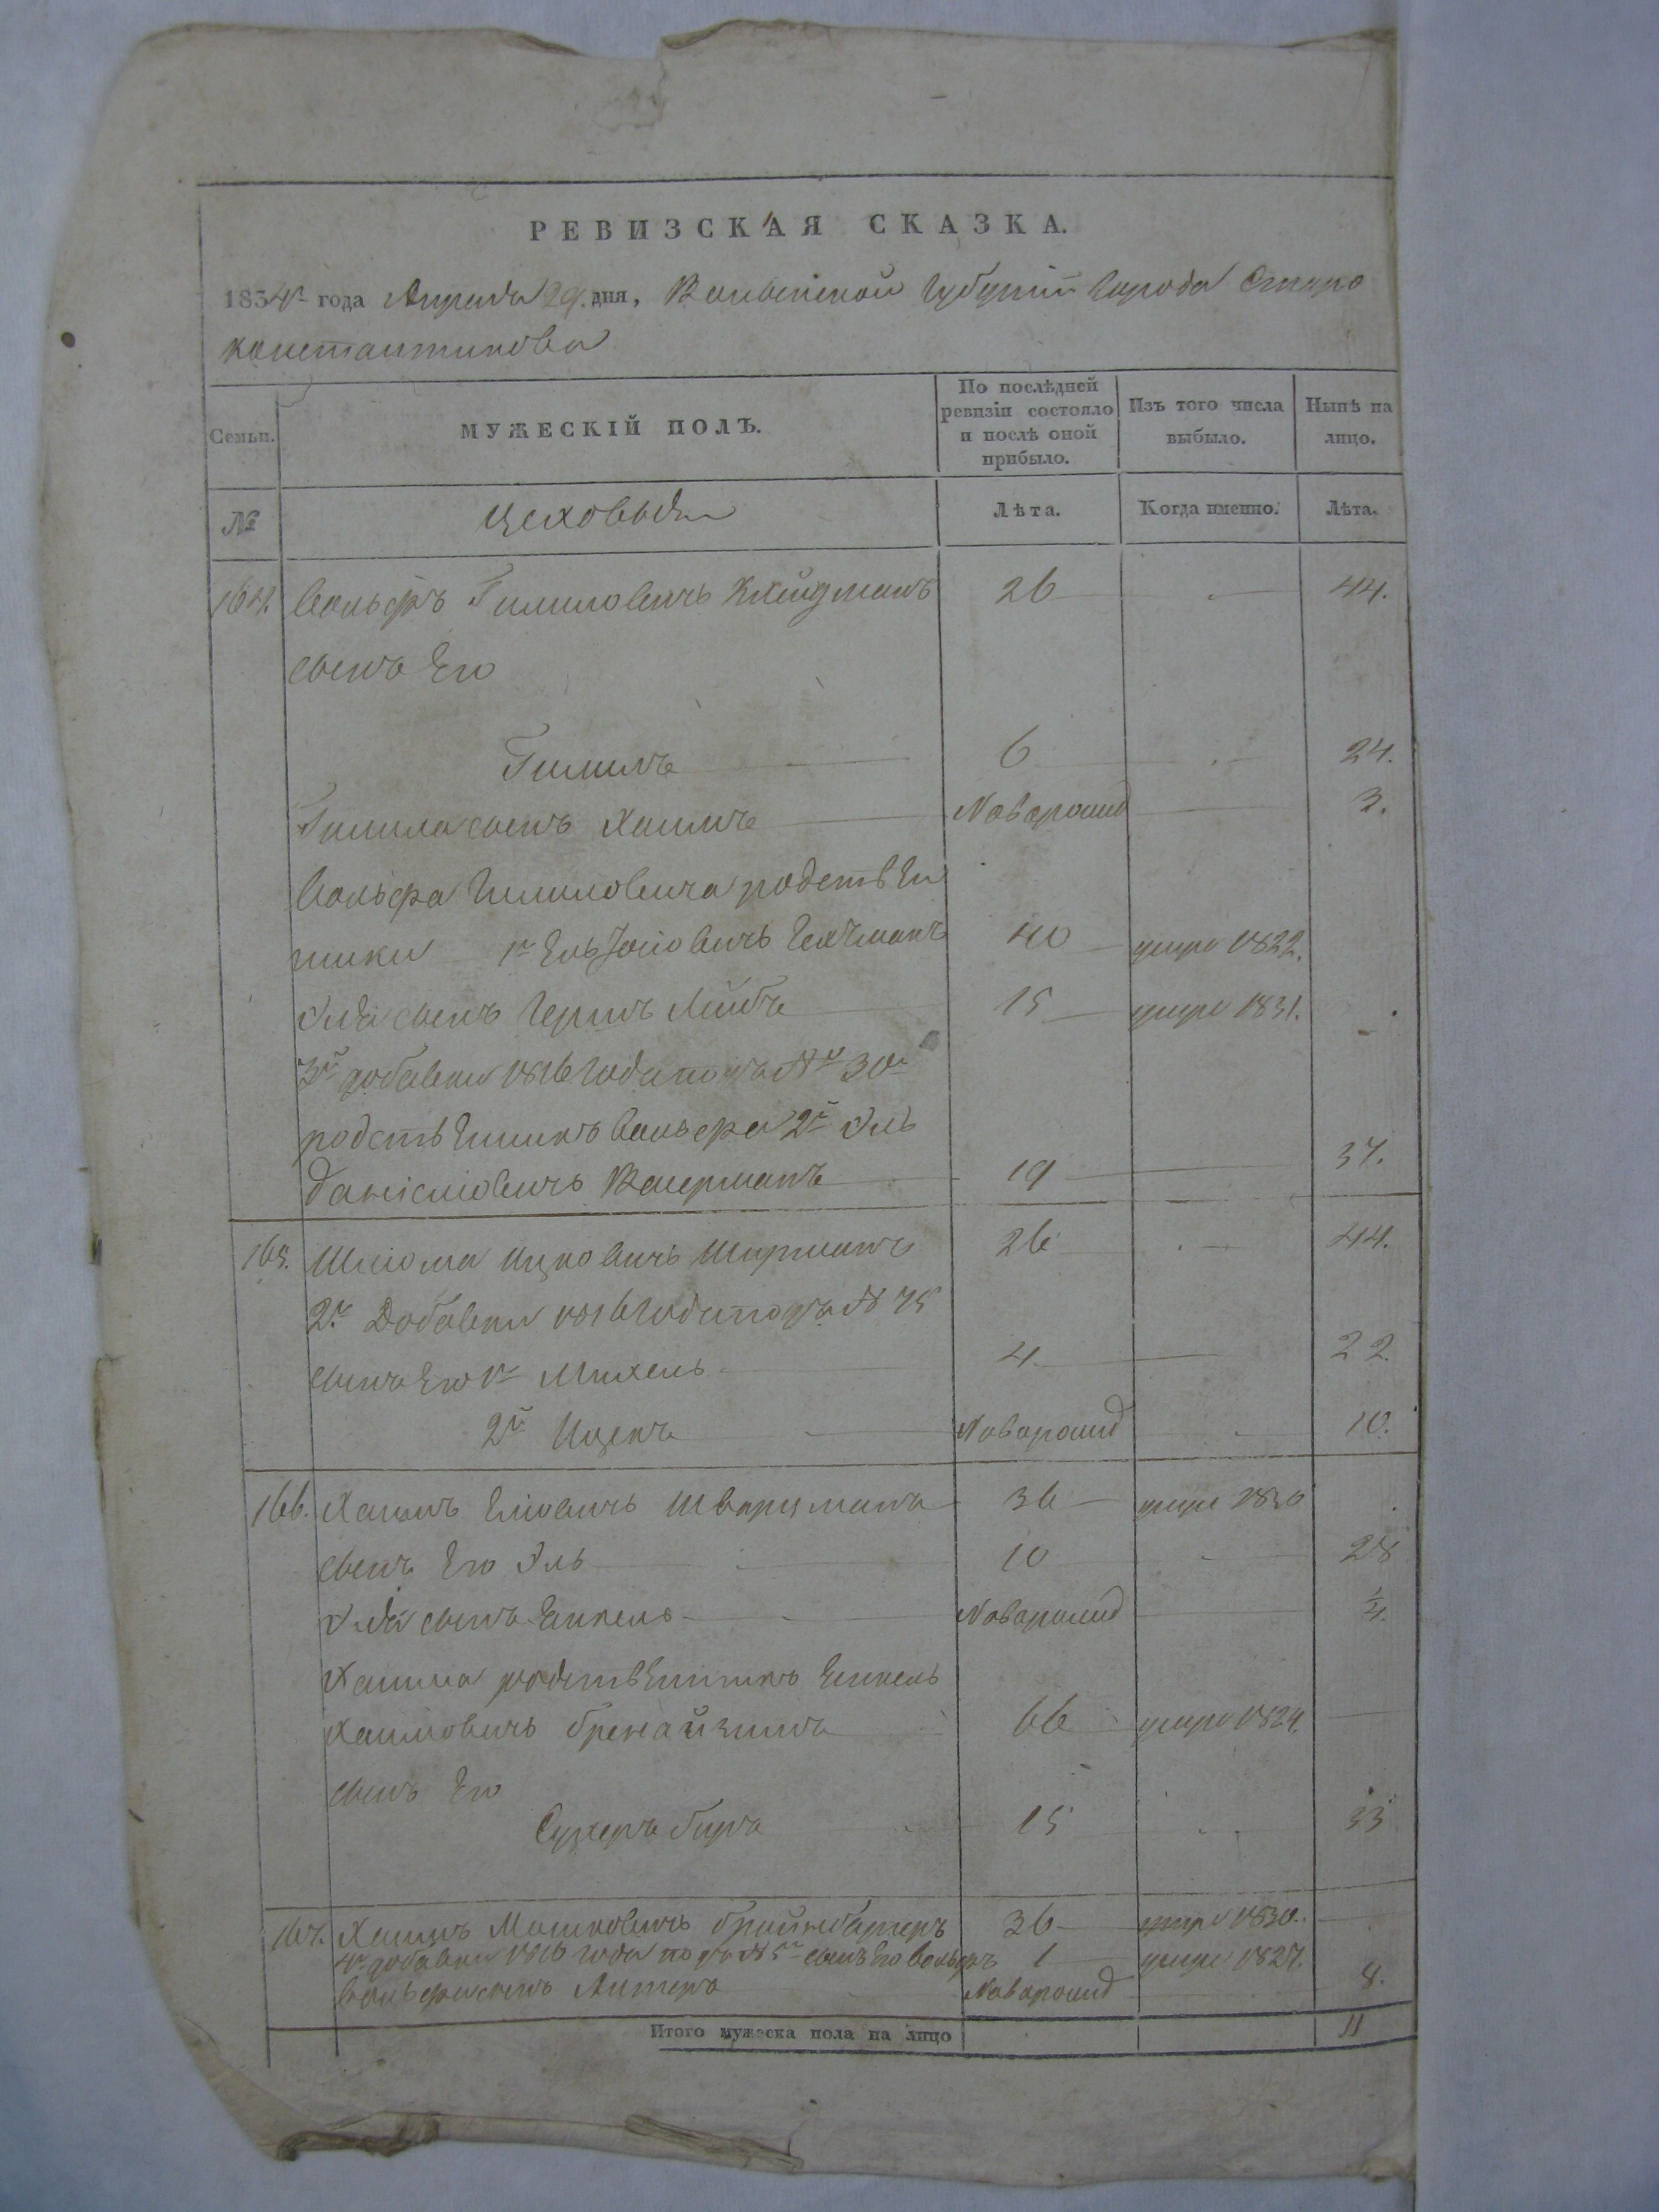 РЕВИЗСКАЯ СКАЗКА.
1834 года Апреля 29. дня, Волынской Губерніи Города Старо
константинова
Семьи.
МУЖЕСКІЙ ПОЛЪ.
По послѣдней ревизіи состояло и послѣ оной прибыло.
Изъ того числа выбыло.
Нынѣ на лицо.
№
цеховыя
Лѣта.
Когда именно.
Лѣта.
164. Вольфъ Гиммовичъ 26 44.
сынъ Его
6 24.
сынъ Хаимъ Новорожд 3.
Вольфа родствен
ники 1й Ель 40 умре 1822.
сынъ Гершъ Лейбъ 15 умре 1831.
3й добавки 1816 года подъ № 30
родственникъ Вольфа 2й Эль
Ваерманъ 19 37.
165. Шлома Ицковичъ 26 44.
2й Добавки 1816 года подъ № 75
сынъ Его 1й Михель 4 22.
2й Ицекъ Новорожд 10.
166. Хаимъ Еліовичъ Шварцманъ 36 умре 1830
сынъ Его Эль 10 28
сынъ Янкель Новорожд ¼.
Хаима родственникъ Янкель
Хаимовичъ 66 умре 1824.
сынъ Его
Сухеръ Беръ 15 33
167. Хаимъ Мошковичъ 36 умре 1830.
4й добавки 1816 года подъ № 5 сынъ Его Вольфъ 1 умре 1827.
Вольфа сынъ Алтеръ Новорожд 8.
Итого мужеска пола на лицо 11